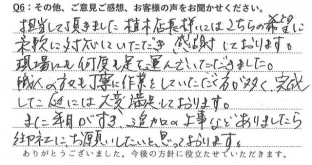 Q6：その他、ご意見ご感想、お客様の声をお聞かせください。
担当して頂きました植木店長様にはこちらの希望に
柔軟に対応していただき、感謝しております。
現場にも何度も足を運んでいただきました。
職人の方々も丁寧に作業をしていただく方が多く、完成
した庭には大変満足しております。
また年月がすぎ、追加の工事などありましたら
御社にお願いしたいと思っております。
ありがとうございました。今後の方針に役立たせていただきます。